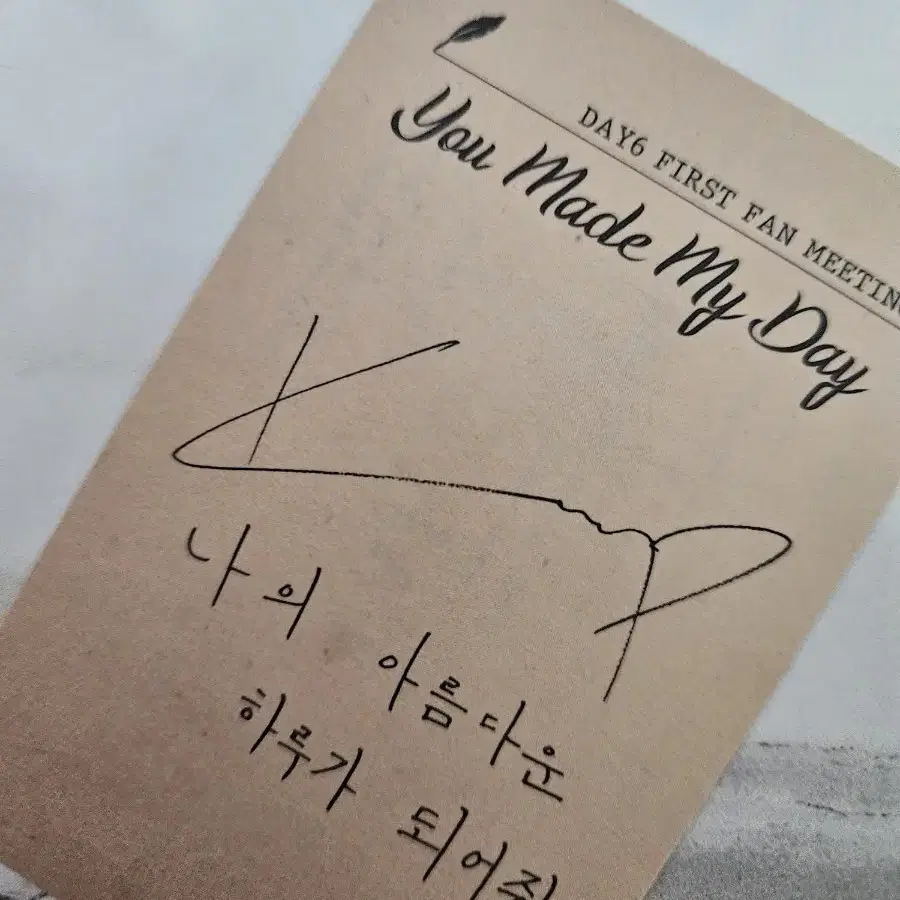 DAY6 FIRST FAN MEETING
You Made My Day
나의 아름다운
하루가 되어